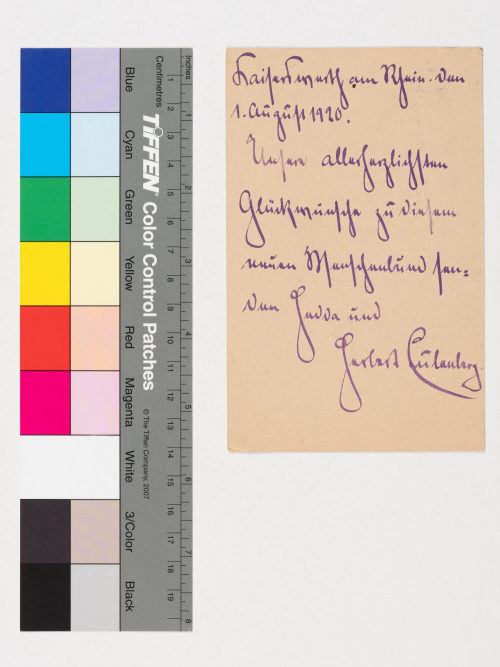 Kaiserswerth am Rhein. den
1. August 1920.
Unsere allerherzlichsten
Glückwünsche zu diesem
neuen Menschenbund sen=
den Hedda und
Herbert Eulenberg.
Inches
Centimetres
TIFFEN® Color Control Patches
© The Tiffen Company, 2007
Blue
Cyan
Green
Yellow
Red
Magenta
White
3/Color
Black
1 2 3 4 5 6 7 8 9 10 11 12 13 14 15 16 17 18 19
1 2 3 4 5 6 7 8